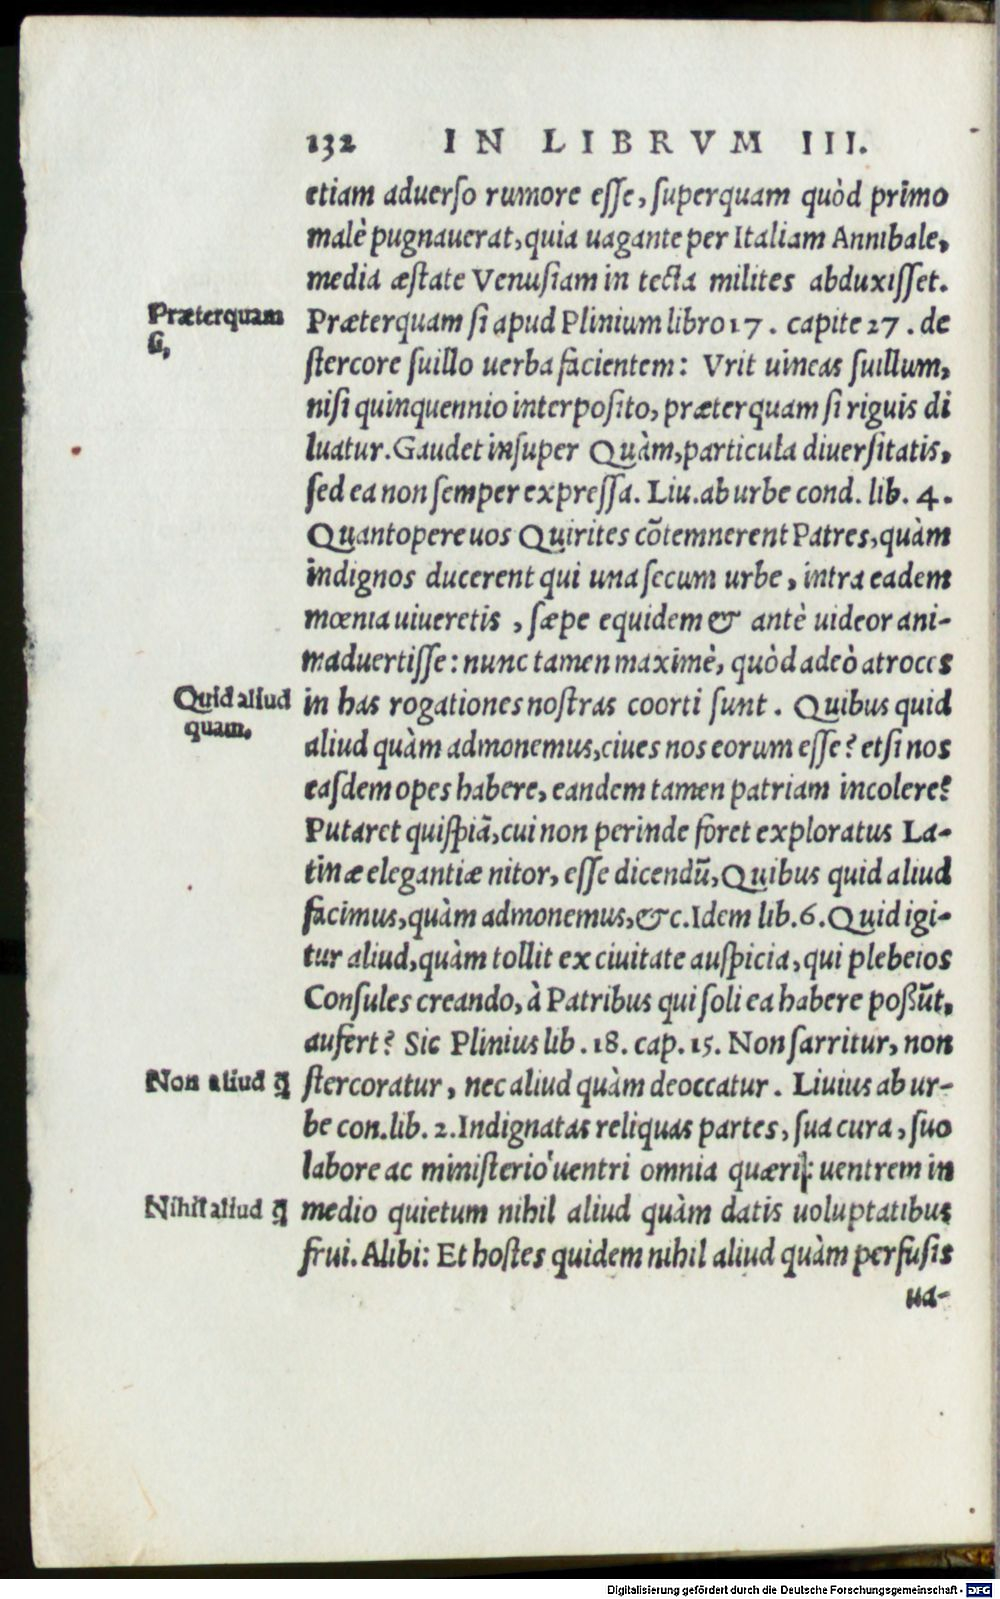 132 IN LIBRVM III.
etiam aduerſo rumore eſſe, ſuperquam quòd primo
malè pugnauerat, quia uagante per Italiam Annibale,
media æſtate Venuſiam in tecta milites abduxiſſet.
Præterquam ſi,
Præterquam ſi apud Plinium libro 17. capite 27. de
ſtercore ſuillo uerba facientem: Vrit uineas ſuillum,
niſi quinquennio interpoſito, præterquam ſi riguis di
luatur. Gaudet inſuper Quàm, particula diuerſitatis,
ſed ea non ſemper expreſſa. Liu. ab urbe cond. lib. 4.
Quantopere uos Quirites cõtemnerent Patres, quàm
indignos ducerent qui una ſecum urbe, intra eadem
mœnia uiueretis, ſæpe equidem & antè uideor ani-
maduertiſſe: nunc tamen maximè, quòd adeò atroces
Quid aliud quam.
in has rogationes noſtras coorti ſunt. Quibus quid
aliud quàm admonemus, ciues nos eorum eſſe? etſi nos
eaſdem opes habere, eandem tamen patriam incolere?
Putaret quiſpiã, cui non perinde foret exploratus La-
tinæ elegantiæ nitor, eſſe dicendũ, Quibus quid aliud
facimus, quàm admonemus, &c. Idem lib. 6. Quid igi-
tur aliud, quàm tollit ex ciuitate auſpicia, qui plebeios
Conſules creando, à Patribus qui ſoli ea habere poßũt,
aufert? Sic Plinius lib. 18. cap. 15. Non ſarritur, non
Non aliud q̃
ſtercoratur, nec aliud quàm deoccatur. Liuius ab ur-
be con. lib. 2. Indignatas reliquas partes, ſua cura, ſuo
labore ac miniſterio uentri omnia quæri: uentrem in
Nihil aliud q̃
medio quietum nihil aliud quàm datis uoluptatibus
frui. Alibi: Et hoſtes quidem nihil aliud quàm perfuſis
ua-
Digitalisierung gefördert durch die Deutsche Forschungsgemeinschaft - DFG